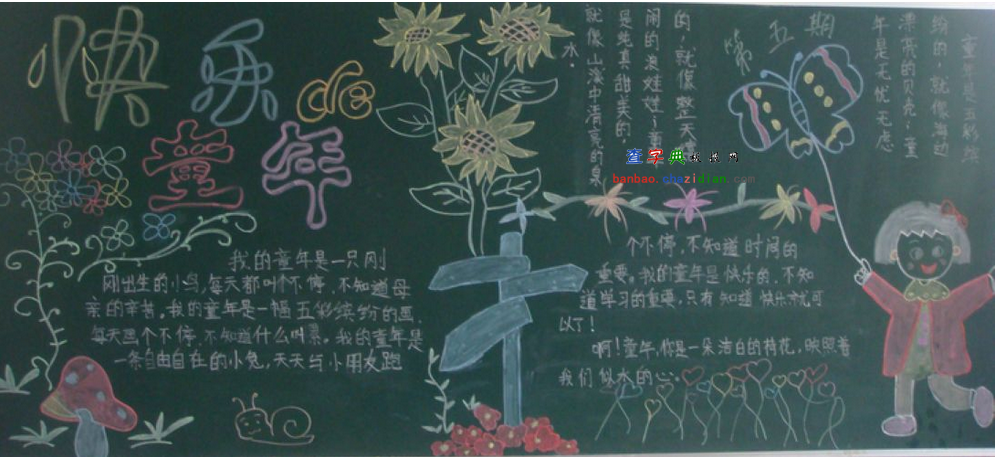 快乐de
童年
我的童年是一只刚
刚出生的小鸟,每天都叫个不停,不知道母
亲的辛苦。我的童年是一幅五彩缤纷的画,
每天画个不停,不知道什么叫累。我的童年是
一条自由自在的小鱼,天天与小朋友跑
个不停,不知道时间的
重要。我的童年是快乐的,不知
道学习的重要,只有知道快乐才就可
以了!
啊!童年,你是一朵洁白的棉花,映照着
我们似水的心。
第五期
童年是五彩缤
纷的,就像海边
漂亮的贝壳;童
年是无忧无虑
的,就像整天
闹的
是纯真甜美的
就像山溪中清亮的泉
水。
查字典
banbao.chazidian.com